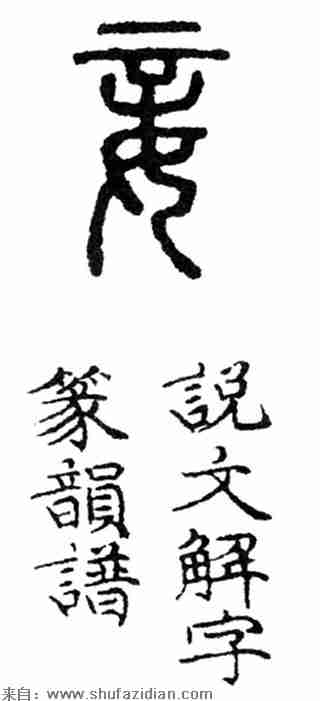 妾
説文解字
篆韻譜
来自：www.shufazidian.com